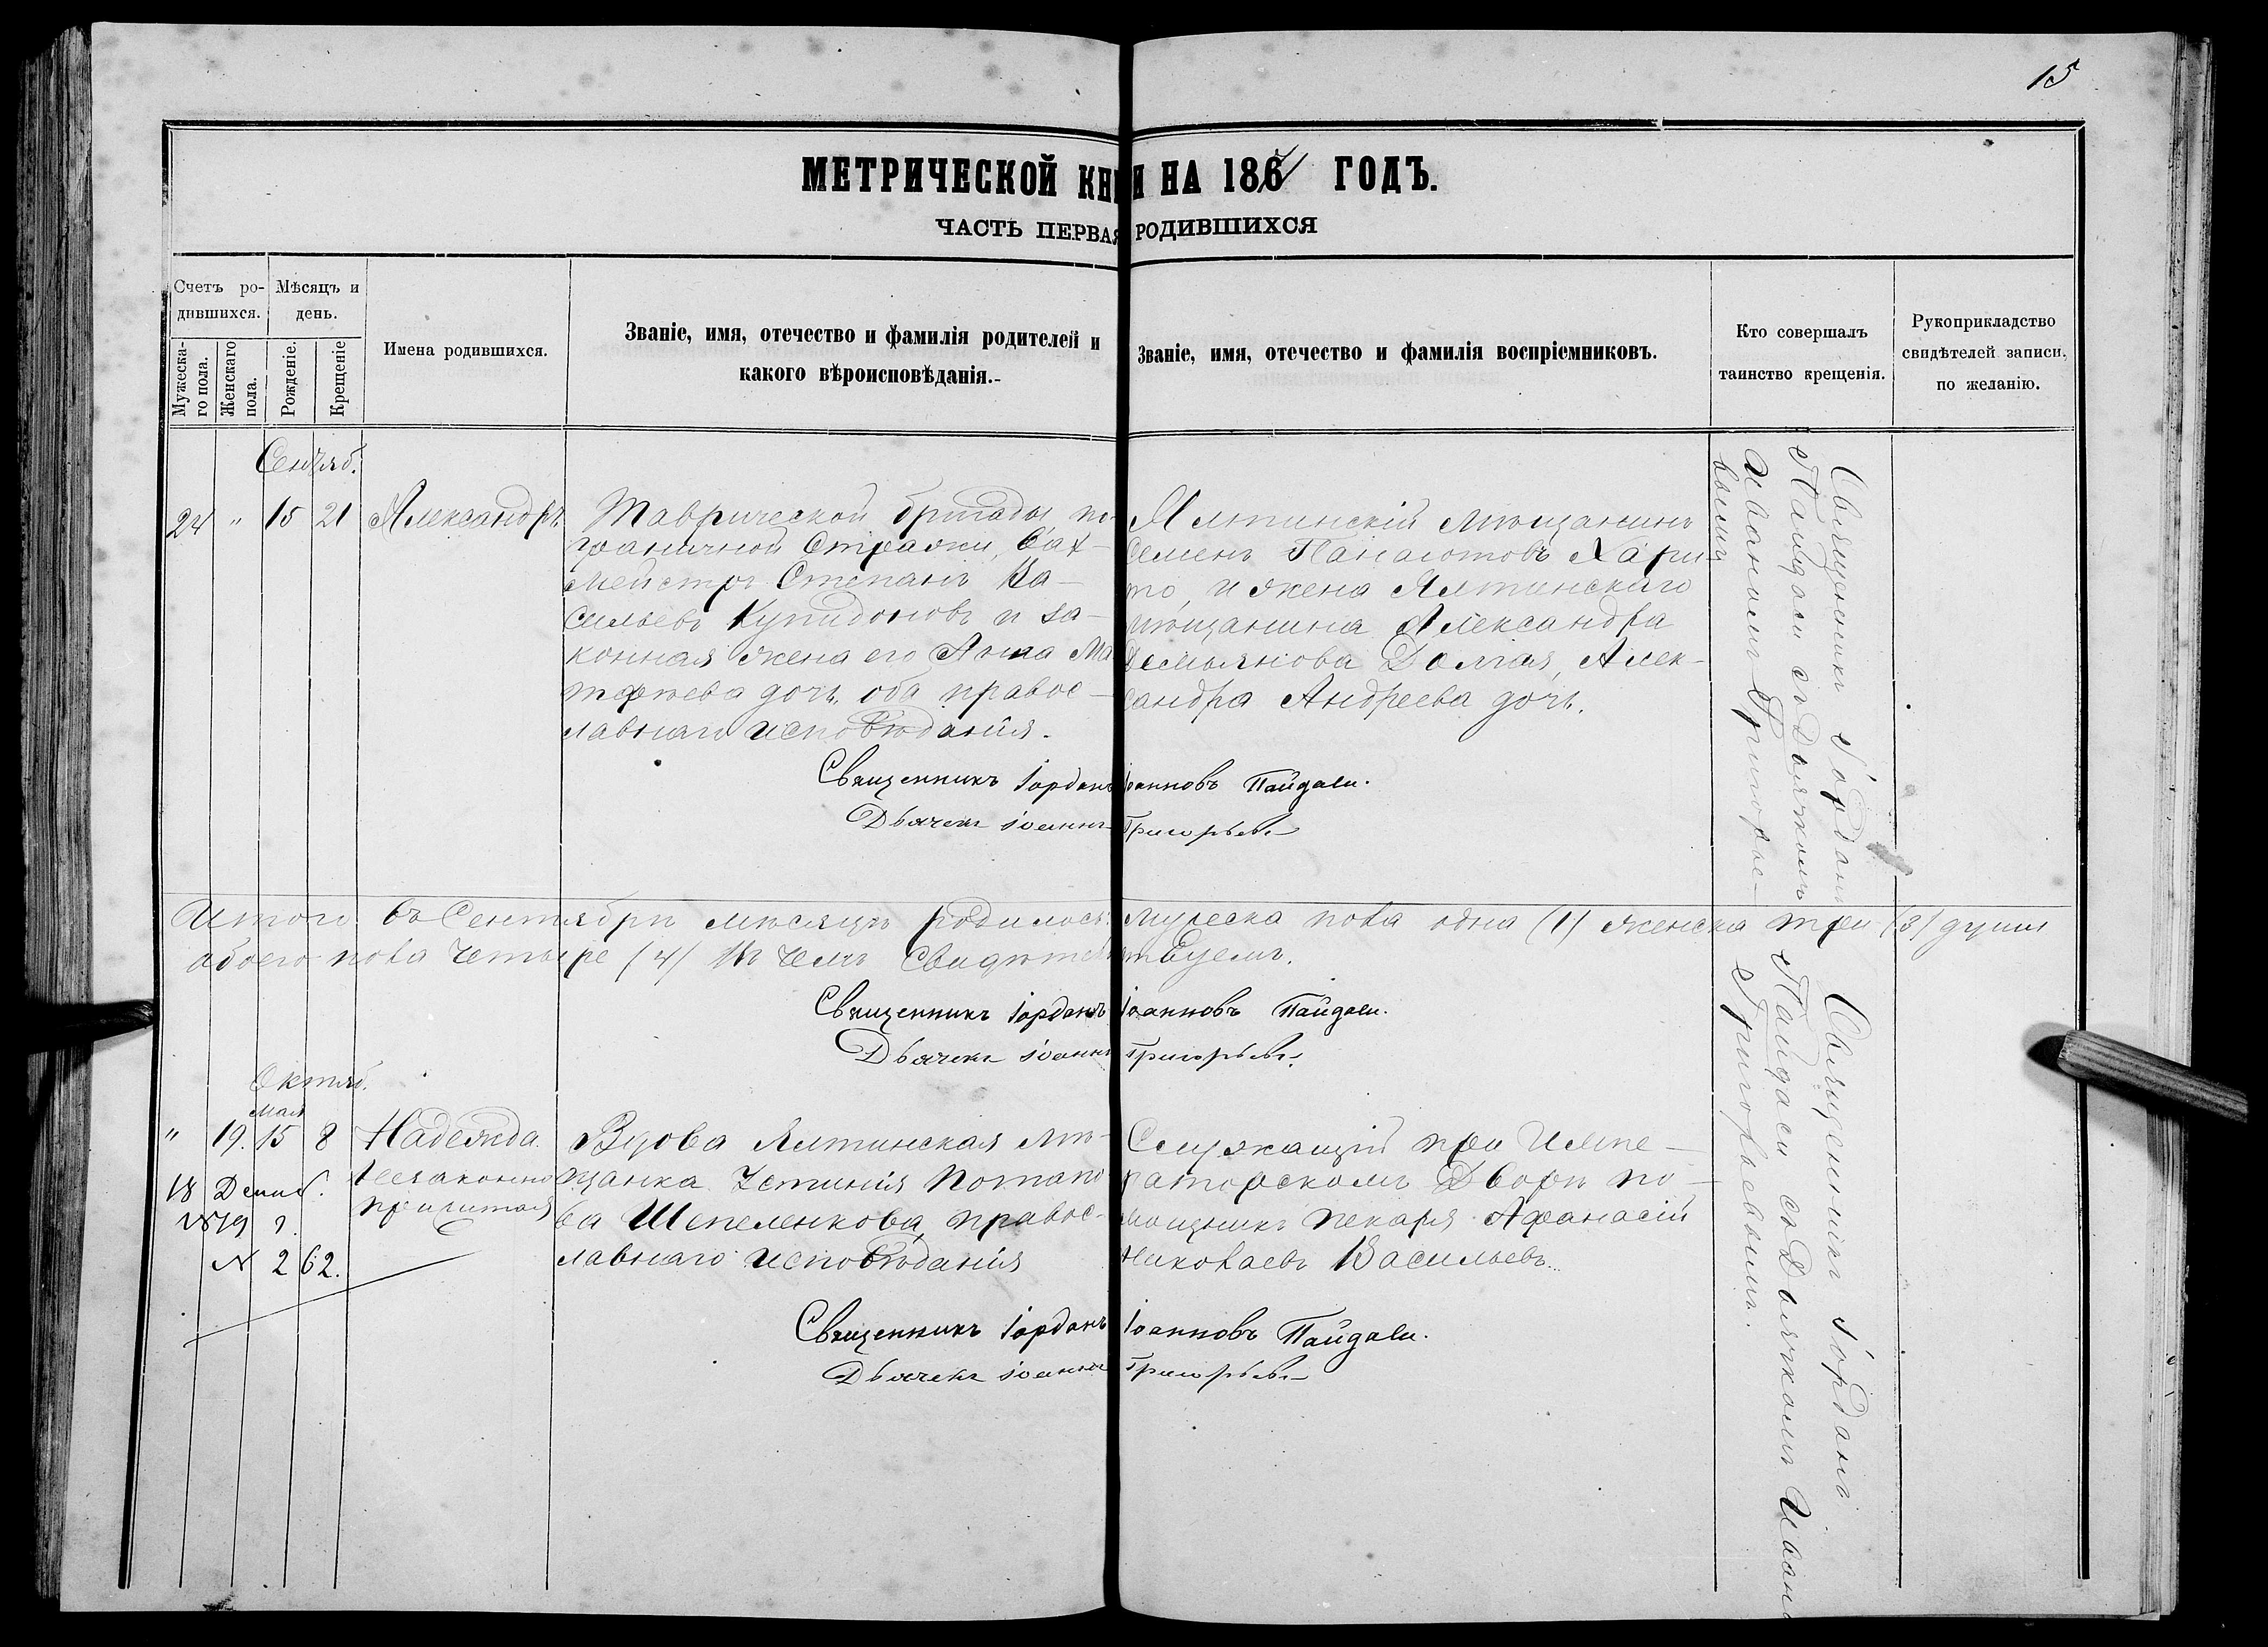 15
МЕТРИЧЕСКОЙ КНИ НА 1871 ГОДЪ.
ЧАСТЬ ПЕРВАЯ РОДИВШИХСЯ
Счетъ ро-
дившихся.
Мужеска-
го пола.
Женскаго
пола.
Мѣсяцъ и
день.
Рожденіе.
Крещеніе
Имена родившихся.
Званіе, имя, отечество и фамилія родителей и
какого вѣроисповѣданія.-
Званіе, имя, отечество и фамилія воспріемниковъ.
Кто совершалъ
таинство крещенія.
Рукоприкладство
свидѣтелей записи,
по желанію.
Сентяб.
24 " 15 21 Александръ
Таврической бригады по-
граничной Стражи, вах-
мейстръ Степанъ Ва-
сильевъ Купидоновъ и за-
конная жена его Анна Ма
твѣева дочь, оба правос-
лавнаго исповѣданія.
Ялтинскій мѣщанинъ
Семенъ Панаіотовъ Хари-
то, и жена Ялтинскаго
мѣщанина Александра
Демьянова Долгая, Алек-
сандра Андреева дочь.
Священникъ Іорданъ
Пайдаси съ Дьячкомъ
Иваномъ Григорье-
вымъ
Священникъ Іорданъ Іоанновъ Пайдаси.
Дьячекъ Іоаннъ Григорьевъ
Итого въ Сентябрѣ мѣсяцѣ родилось: мужеска пола одна (1) женска три (3) души
обоего пола четыре (4) Въ чемъ Свидѣтельствуемъ.
Священникъ Іорданъ Іоанновъ Пайдаси.
Дьячекъ Іоаннъ Григорьевъ.
Октяб.
мая
" 19. 15 8 Надежда.
незаконно
прижитая
18 Декаб.
1879 г.
N 262.
Вдова Ялтинская мѣ-
щанка Устинія Потапо
ва Шепеленкова, правос-
лавнаго исповѣданія
Служащій при Импе-
раторскомъ Дворѣ по-
мощникъ пекаря Афанасій
Николаевъ Васильевъ.
Священникъ Іорданъ
Пайдаси съ Дьячкомъ Иваномъ
Григорьевымъ.
Священникъ Іорданъ Іоанновъ Пайдаси.
Дьячекъ Іоаннъ Григорьевъ